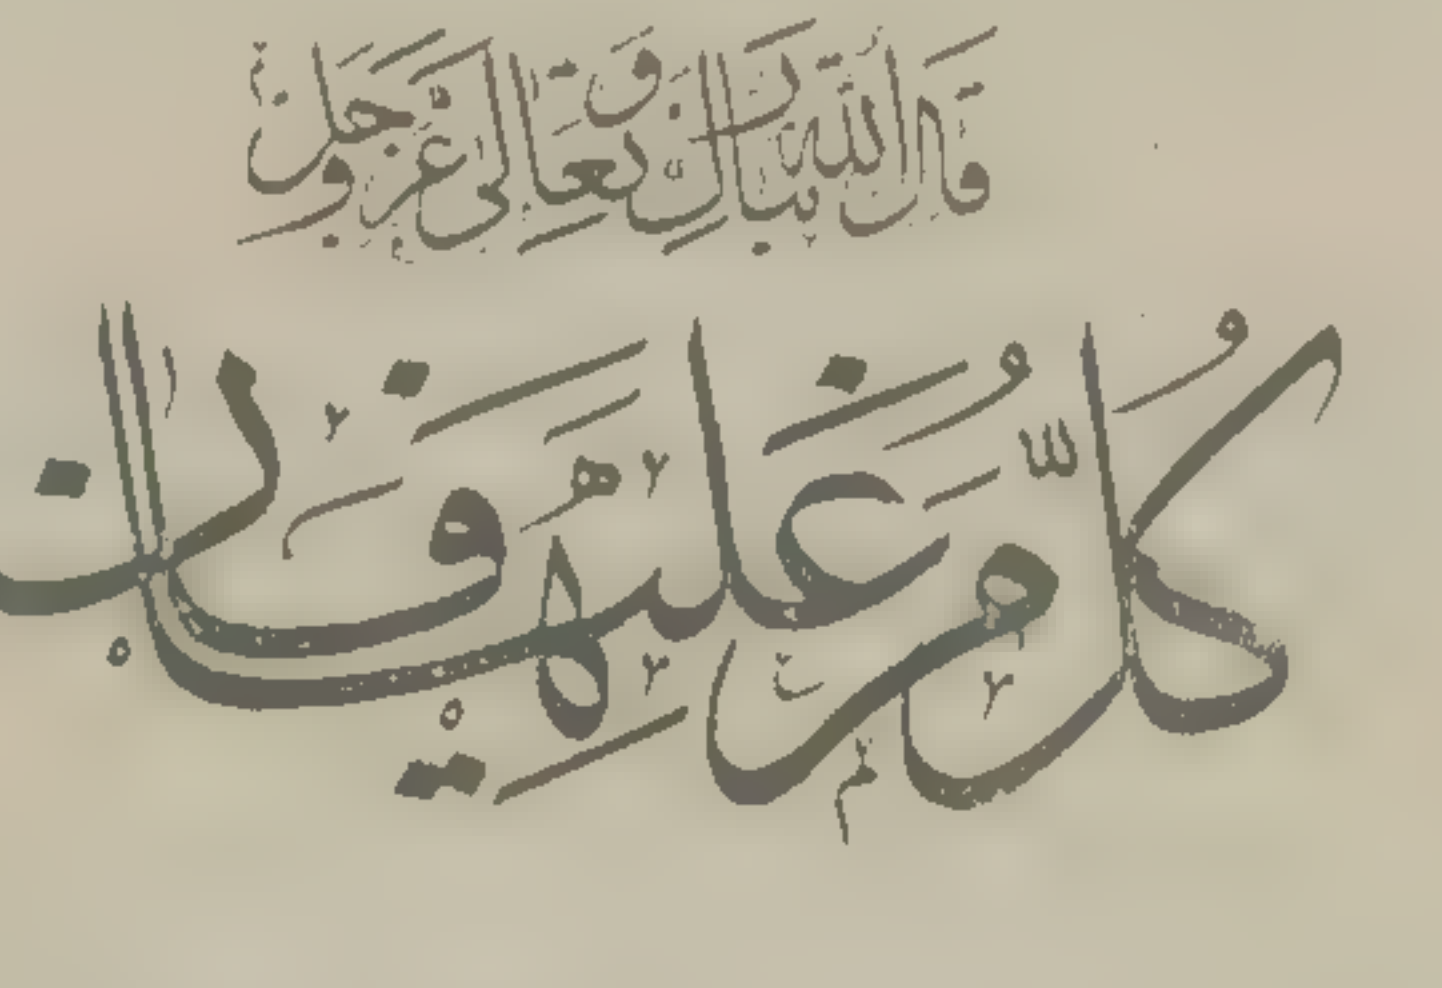 قَالَ اللّٰهُ تَبَارَكَ وَتَعَالٰى عَزَّ وَجَلَّ
كُلُّ مَنْ عَلَيْهَا فَانٍ